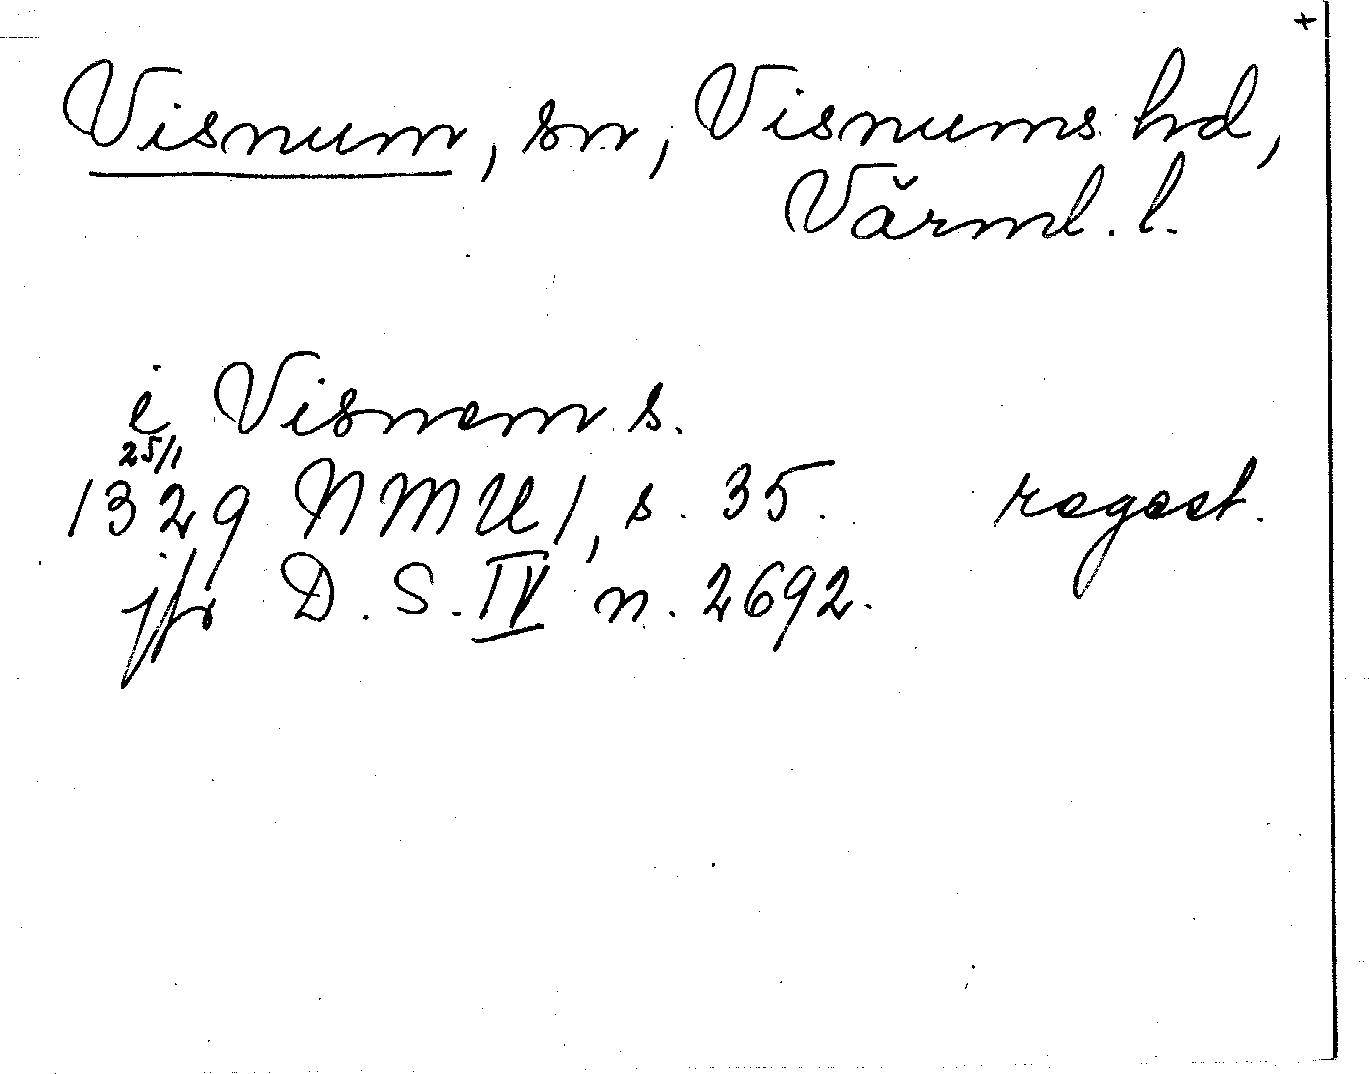 +
Visnum, sn, Visnums hd,
Värml. l.
i Visnem s.
25/1
1329 NMU 1, s. 35. regest.
jfr D. S. IV n. 2692.